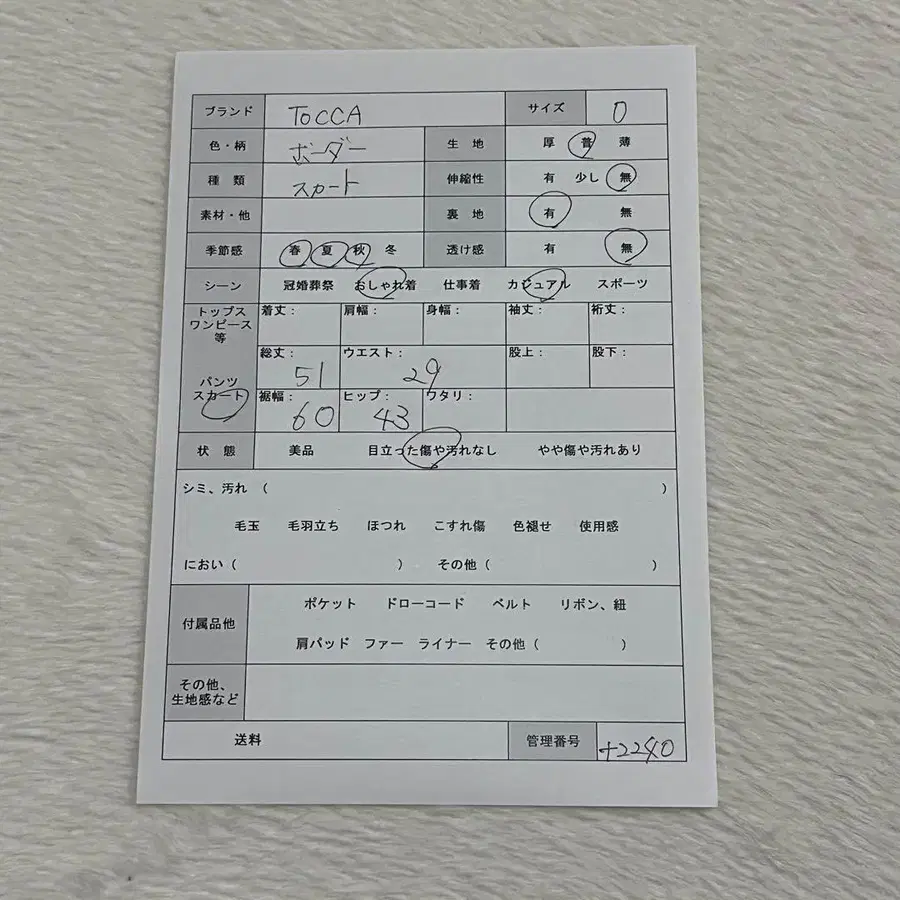 ブランド TOCCA サイズ 0
色・柄 ボーダー 生 地 厚 普 薄
種 類 スカート 伸縮性 有 少し 無
素材・他 裏 地 有 無
季節感 春 夏 秋 冬 透け感 有 無
シーン 冠婚葬祭 おしゃれ着 仕事着 カジュアル スポーツ
トップス
ワンピース
等
着丈： 肩幅： 身幅： 袖丈： 裄丈：
パンツ
スカート
総丈： 51 ウエスト： 29 股上： 股下：
裾幅： 60 ヒップ： 43 ワタリ：
状 態 美品 目立った傷や汚れなし やや傷や汚れあり
シミ、汚れ （ ）
毛玉 毛羽立ち ほつれ こすれ傷 色褪せ 使用感
におい（ ） その他（ ）
付属品他 ポケット ドローコード ベルト リボン、紐
肩パッド ファー ライナー その他（ ）
その他、
生地感など
送料 管理番号 +2240